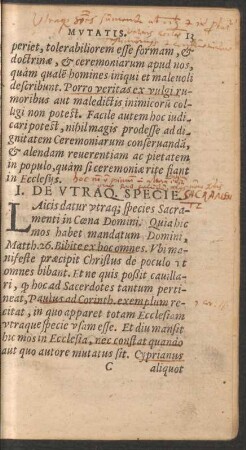 MVTATIS. 13
periet, tolerabiliorem esse formam, &
doctrinæ, & ceremoniarum apud nos,
quàm qualē homines iniqui et maleuoli
describunt. Porro veritas ex vulgi ru-
moribus aut maledictis inimicorū col-
ligi non potest. Facile autem hoc iudi-
cari potest, nihil magis prodesse ad di-
gnitatem Ceremoniarum conseruandā,
& alendam reuerentiam ac pietatem
in populo, quàm si ceremoniæ rite fiant
in Ecclesijs.
I. DE VTRAQ. SPECIE
SACRAMEN
LAicis datur vtraq; species Sacra-
menti in Cœna Domini. Quia hic
mos habet mandatum Domini,
Matth. 26. Bibite ex hoc omnes. Vbi ma-
nifeste præcipit Christus de poculo vt
omnes bibant. Et ne quis poßit cauilla-
ri, ꝙ hoc ad Sacerdotes tantum perti-
neat, Paulus ad Corinth. exemplum re-
citat, in quo apparet totam Ecclesiam
vtraque specie vsam esse. Et diu mansit
hic mos in Ecclesia, nec constat quando
aut quo autore mutatus sit. Cyprianus
C aliquot